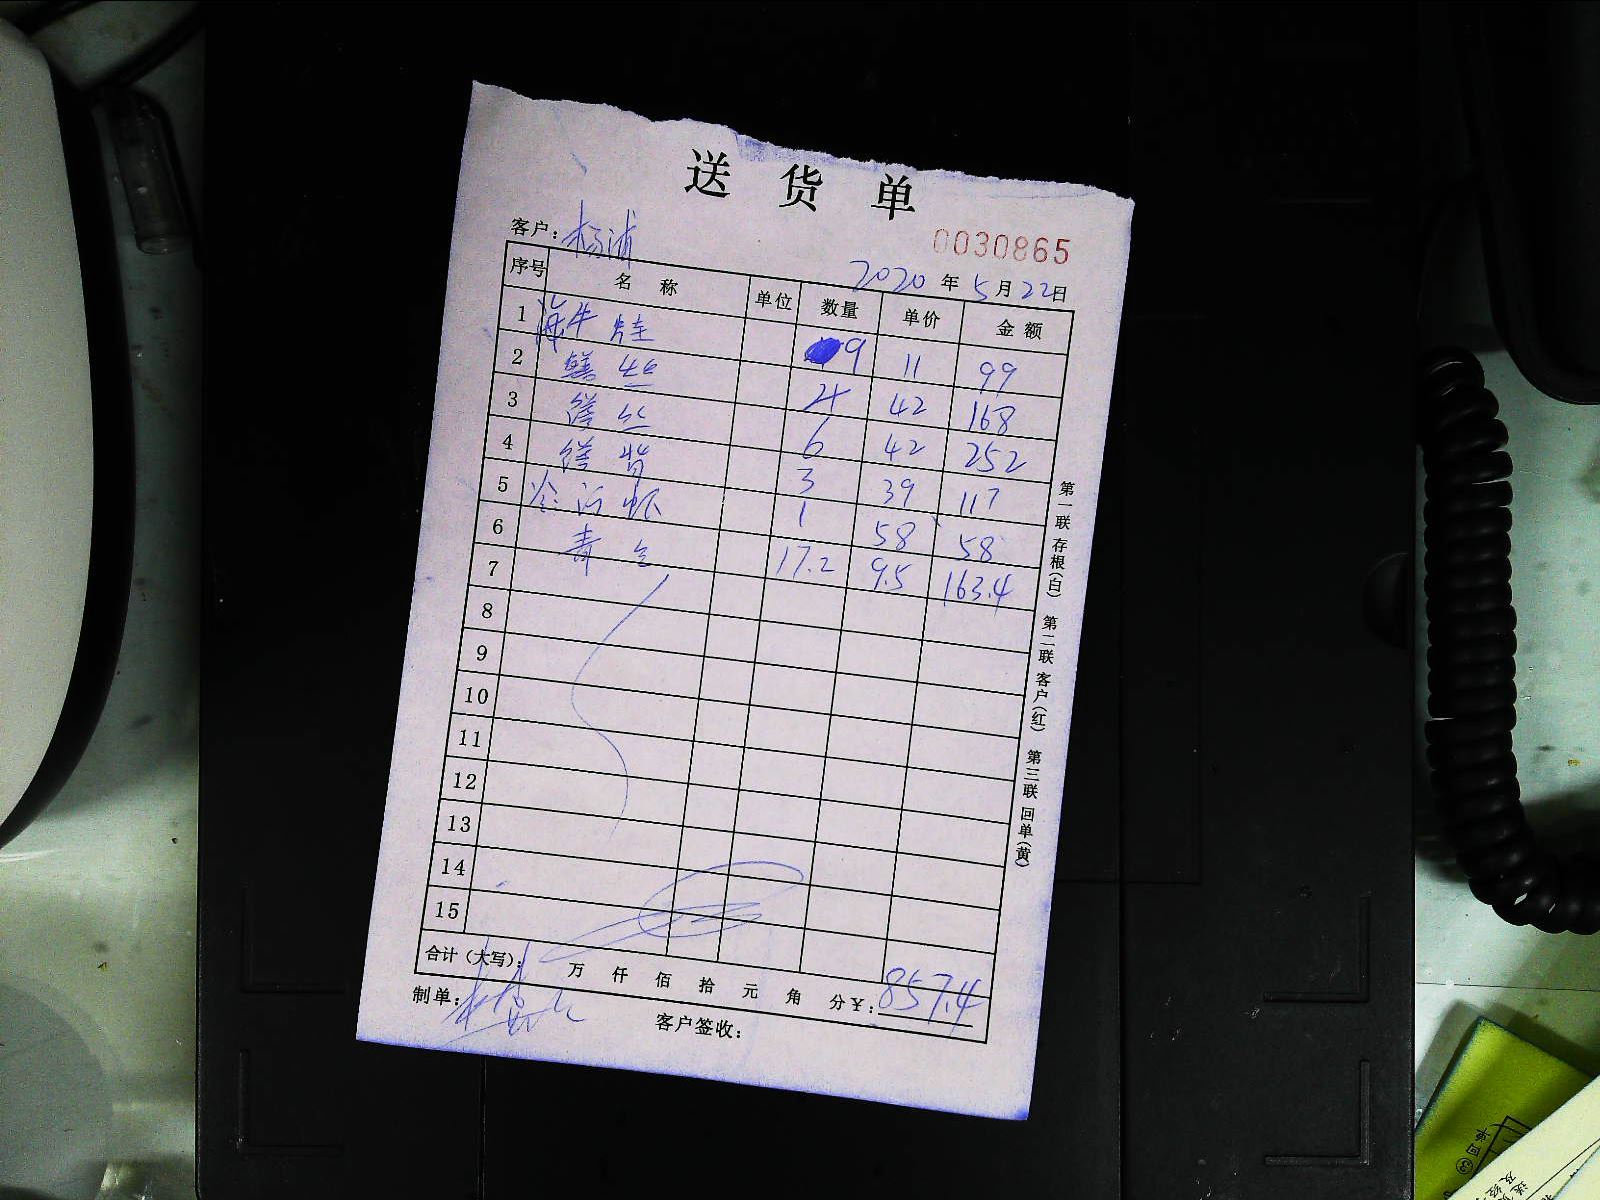 送货单
客户：杨浦
0030865
2020年5月22日
序号 名称 单位 数量 单价 金额
1 海牛蛙 9 11 99
2 鳝丝 4 42 168
3 鳝丝 6 42 252
4 鳝背 3 39 117
5 河虾 1 58 58
6 青 17.2 9.5 163.4
7
8
9
10
11
12
13
14
15
合计（大写）： 万 仟 佰 拾 元 角 分￥：857.4
制单：
客户签收：
第一联 存根(白) 第二联 客户(红) 第三联 回单(黄)